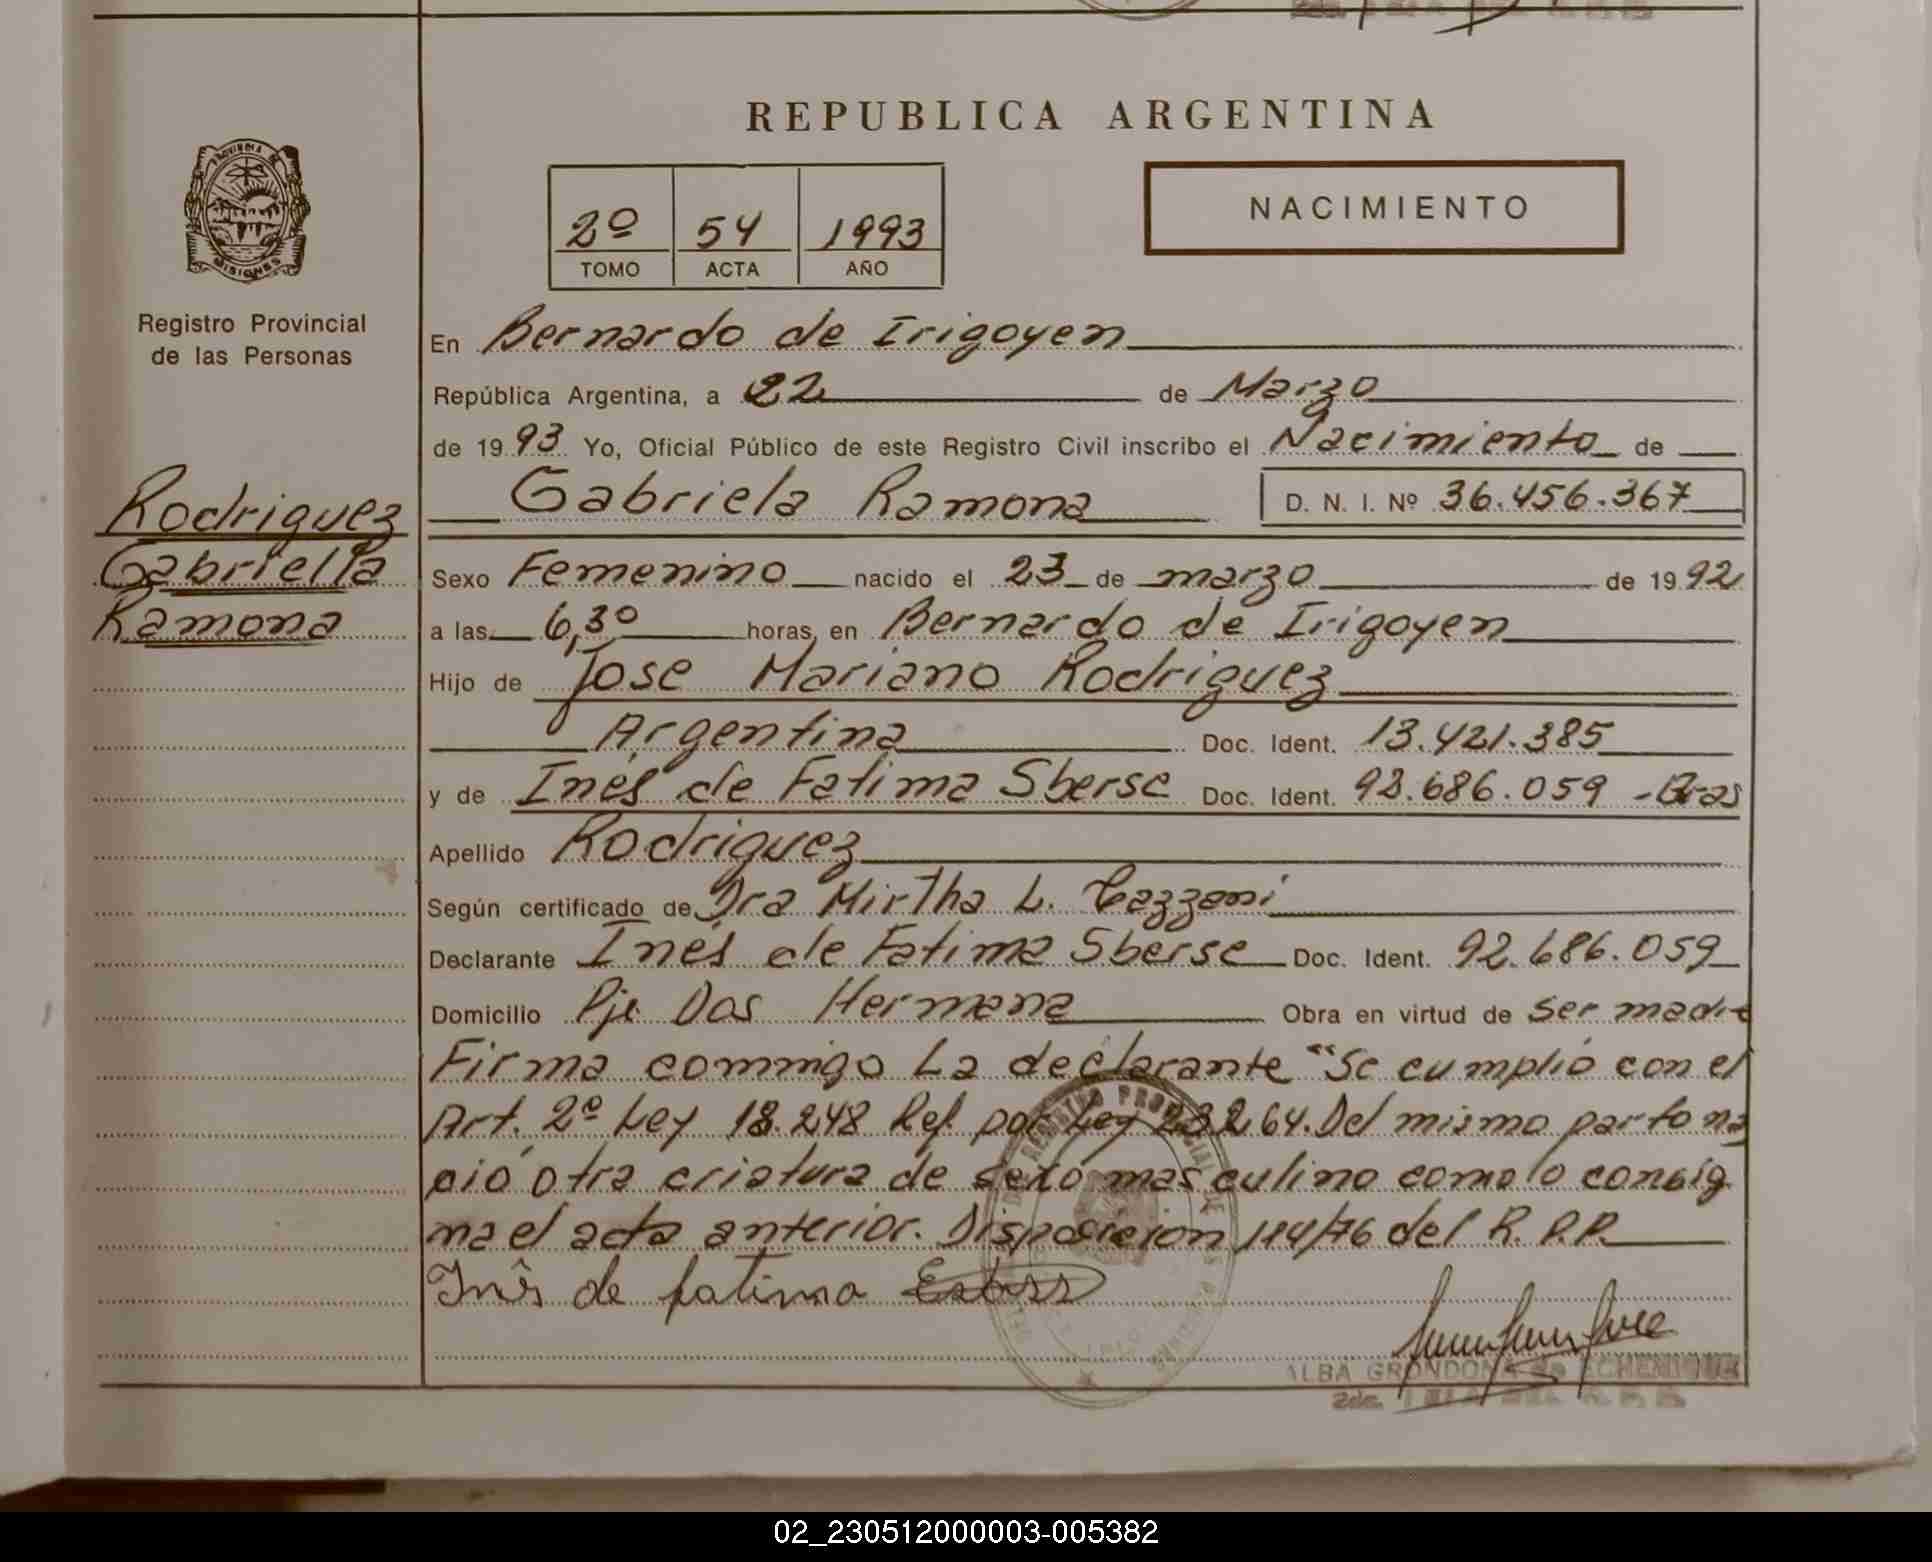 REPUBLICA ARGENTINA
PROVINCIA DE
MISIONES
Registro Provincial
de las Personas
2º 54 1993
TOMO ACTA AÑO
NACIMIENTO
En Bernardo de Irigoyen
República Argentina, a 22 de Marzo
de 1993 Yo, Oficial Público de este Registro Civil inscribo el Nacimiento de
Rodriguez
Gabriella
Ramona
Gabriela Ramona D. N. I. Nº 36.456.367
Sexo Femenino nacido el 23 de marzo de 1992
a las 6,30 horas, en Bernardo de Irigoyen
Hijo de Jose Mariano Rodriguez
Argentina Doc. Ident. 13.421.385
y de Inés de Fatima Sberse Doc. Ident. 92.686.059 - Bras
Apellido Rodriguez
Según certificado de Dra Mirtha L. Cazzani
Declarante Inés de Fatima Sberse Doc. Ident. 92.686.059
Domicilio Pje Dos Hermana Obra en virtud de ser madre
Firma commigo La declarante "Se cumplió con el
Art. 2º Ley 18.248 Ref. por Ley 23264. Del mismo parto na
ció otra criatura de sexo masculino como lo consig
na el acta anterior. Disposicion 114/76 del R.P.P.
Inês de fatima
ALBA GRONDONA de ECHENIQUE
02_230512000003-005382